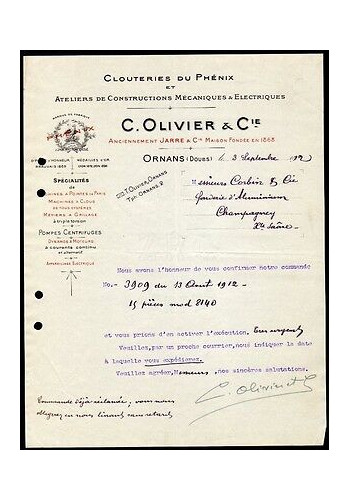 Clouteries du Phénix
ET
Ateliers de Constructions Mécaniques & Electriques
C. OLIVIER & CIE
Anciennement JARRE & Cie Maison Fondée en 1868
ORNANS (Doubs) le 3 Septembre 1912
MARQUE DE FABRIQUE
MÉDAILLES D'OR
SPÉCIALITÉS
DE
MACHINES À POINTES DE PARIS
MACHINES À CLOUS
DE TOUS SYSTÈMES
MÉTIERS À GRILLAGE
à triple torsion
POMPES CENTRIFUGES
DYNAMOS & MOTEURS
à courants continu
et alternatif
APPAREILLAGE ELECTRIQUE
TÉLÉG. OLIVIER, ORNANS
TÉLÉPH. ORNANS 2
Messieurs Corbin & Cie
Fonderie d'Aluminium
Champagney
Hte Saône
Nous avons l'honneur de vous confirmer notre commande
No.- 3909 du 13 Août 1912 -
15 pièces mod 8140
et vous prions d'en activer l'exécution. Très urgent
Veuillez, par un proche courrier, nous indiquer la date
à laquelle vous expédierez.
Veuillez agréer, Messieurs, nos sincères salutations.
C. Olivier
Commande déjà réclamée, vous nous
obligerez en nous livrant sans retard